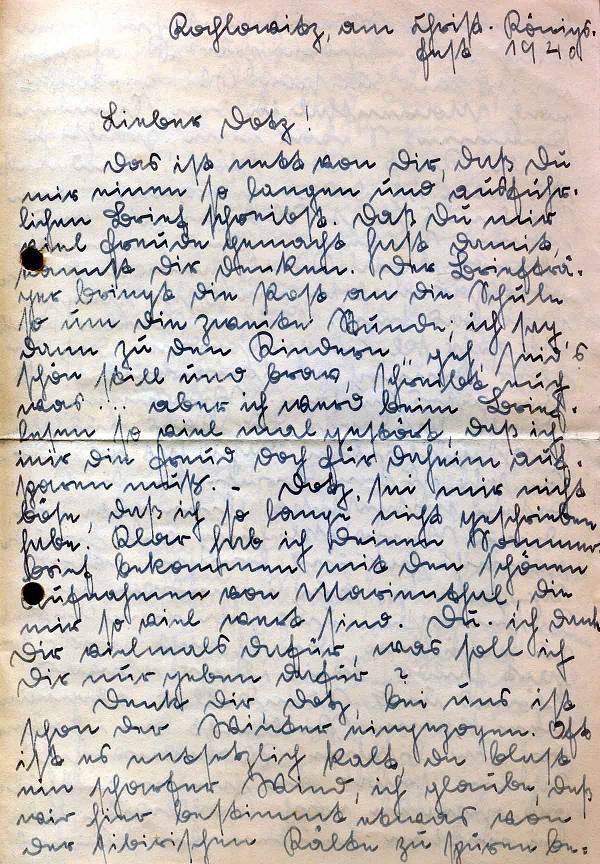 Kochlowitz, am Christ-Königs-
fest 1940
Lieber Dotz!
Das ist nett von Dir, daß Du
mir einen so langen und ausführ-
lichen Brief schreibst. Daß Du mir
viel Freude gemacht hast damit,
kannst Dir denken. Der Briefträ-
ger bringt die Post an die Schule
so um die zweite Stunde; ich sag
dann zu den Kindern „ geh, seid's
schön still und brav, schreibt euch
was ... aber ich werd beim Brief-
lesen so viel mal gestört, daß ich
mir die Freud doch für daheim auf-
sparen muß. - Dotz, sei mir nicht
böse, daß ich so lange nicht geschrieben
habe. Klar hab ich Deinen Sommer-
brief bekommen mit den schönen
Aufnahmen von Marienthal, die
mir so viel wert sind. Du. ich dank
Dir vielmals dafür, was soll ich
Dir nur geben dafür?
Denk Dir Dotz, bei uns ist
schon der Winter eingezogen. Oft
ist es entsetzlich kalt da blast
ein scharfer Wind, ich glaube, daß
wir hier bestimmt etwas von
der sibirischen Kälte zu spüren be-